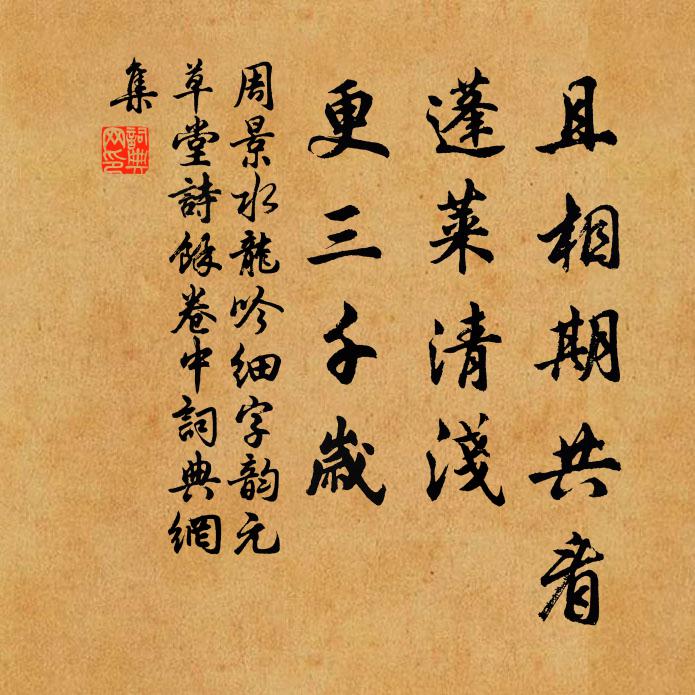 且相期共看
蓬萊清淺
更三千歲
周景水龍吟細字韵元
草堂詩餘卷中詞典網
集
詞典網印